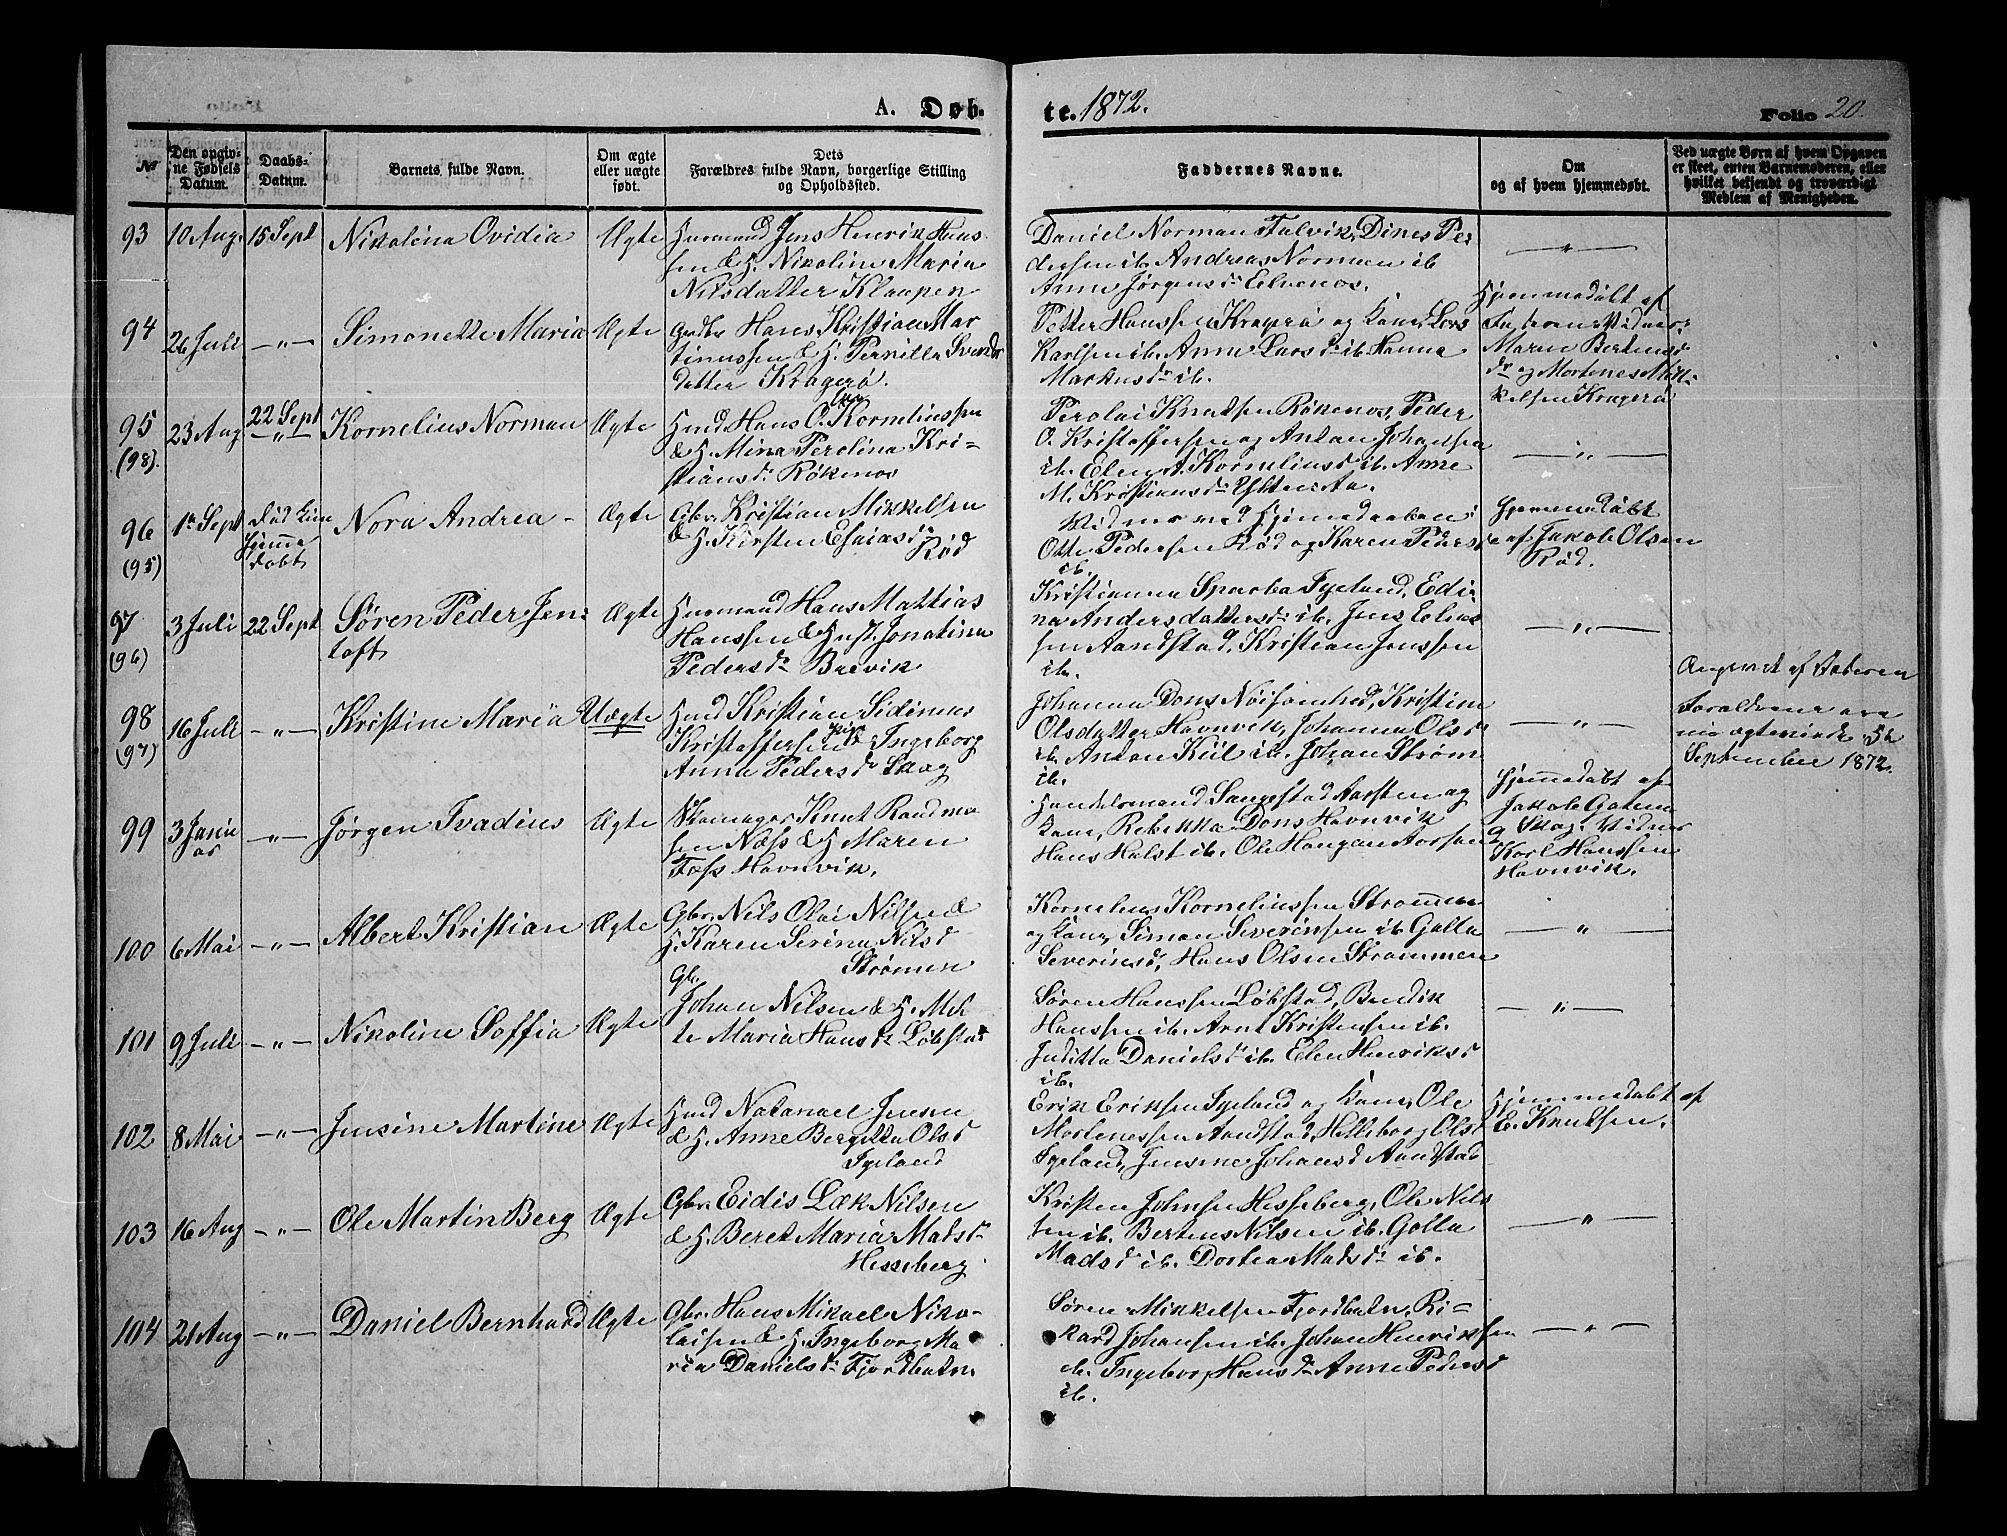 A. Døb-
te. 1872.
Folio 20.
No
Den opgiv-
ne Fødsels
Datum.
Daabs-
Datum.
Barnets fulde Navn.
Om ægte
eller uægte
født.
Dets
Forældres fulde Navn, borgerlige Stilling
og Opholdssted.
Faddernes Navne.
Om
og af hvem hjemmedøbt.
Ved uægte Børn af hvem Opgaven
er skeet, enten Barnemoderen, eller
hvilket bekjendt og troværdigt
Medlem af Menigheden.
93 10 Aug. 15 Sept Nikolina Ovidia Ægte Husmand Jens Henrik Hans-
sen & H. Nikoline Maria
Nilsdatter Klaapen
Daniel Norman Fulvik, Dines Pe-
dersen ib. Andreas Norman ib
Anne Jørgensd Elvenes.
— " —
94 26 Juli — " — Simonette Maria Ægte Hans Kristian Mar
tinussen & H. Pernilla Svends
datter Kragerø.
Petter Hanssen Kragerø og Kone, Lars
Karlsen ib. Anne Larsd ib. Hanna
Markusdr ib.
Hjemmedøbt af
Faderen. Vidner:
Maren Bertens
dr og Mortenes Mik-
kelsen Kragerø
95
(98).
23 Aug 22 Sept
— " —
Kornelius Norman Ægte Hmd Hans O. Korneliussen
& H. Mina Perolina Kri-
stiansd. Røkenes
Perolai Knutsen Røkenes, Peder
O. Kristoffersen og Anton Johansen
ib. Elen A. Korneliusd ib. Anne
M. Kristiansdr
— " —
96
(95)
1n Sept
Hjemme
døbt
Nora Andrea - Ægte Gbr. Kristian Mikkelsen
& H. Kirsten Esaiasdr
Rød
Vidner ved Hjemmedaaben:
Otte Pedersen Rød og Karen Pedersd
ib.
Hjemmedøbt
af Jakob Olsen
Rød.
97
(96)
3 Juli 22 Sept Søren Peder Jen-
toft
Ægte Husmand Hans Mattias
Hanssen & Hust. Jonatina
Pedersdr Brevik
Kristianna Sparba Fgeland, Edi-
na Andersdatter ib. Jens Elias
sen Aandstad, Kristian Jenssen
ib.
— " —
98
(97)
16 Juli — " — Kristine Maria Uægte Hmd Kristian Sidenius
Kristoffersen & Ingeborg
Anna Pedersdr Skog
Johanna Dons Nøisomhed, Kristine
Olsdatter Havnvik, Johanna Olsd
ib. Anton Kiil ib. Johan Strøm
ib.
— " —
Angivet af Faderen
Forældrene ere
nu ægteviede
September 1872.
99 3 Janu
ar
— " — Jørgen Ivadius Ægte Skomager Knut Rasmu
sen Næss & H. Maren
Foss Havnvik.
Handelsmand Sangestad Aarsten og
Kone, Rebekka Dons Havnvik
Hans Holst ib. Ole Haugan Aarsten
Hjemmedøbt af
Jakob
Skog. Vidner
Karl Hanssen
Havnvik.
100 6 Mai — " — Albert Kristian Ægte Gbr. Nils Olai Nilsen &
H. Karen Serina Nilsd
Strømen
Kornelius Korneliussen Strommen
og Kone, Simon Severinsen ib Golla
Severinsd, Hans Olsen Strommen
— " —
101 9 Juli — " — Nikoline Soffia Ægte Gbr.
Johan Nilsen & H. Met
te Maria Hansdr Løbsta
Søren Hanssen Løbstad, Bendik
Hanssen ib. Arnt Kristensen ib.
Juditta Danielsd ib. Elen Henriksd
ib.
— " —
102 8 Mai — " — Jensine Martine Ægte Hmd Natanael Jensen
& H. Anne Bergitta Olsd
Fgeland
Erik Eriksen Fgeland og Kone, Ole
Mortenessen Aandstad, Helleborg Olsd
Fgeland, Jensine Johansd Aandstad
Hjemmedøbt af
E. Knutsen.
103 16 Aug — " — Ole Martin Berg Ægte Gbr. Eidis Læk Nilsen
& H. Beret Maria Madsd
Hesseberg
Kristen Johnsen Hesseberg, Ole Nils
sen ib. Bertens Nilsen ib. Golla
Madsd ib. Dortea Madsdr ib.
— " —
104 21 Aug — " — Daniel Bernhard Ægte Gbr. Hans Mikael Niko-
laisen & H. Ingeborg Ma
ria Danielsdr Fjordbotn.
Søren Mikkelsen Fjordbotn, Ri-
kard Johansen ib. Johan Henriksen
ib. Ingeborg Hansdr Anne Pedersd
ib.
— " —